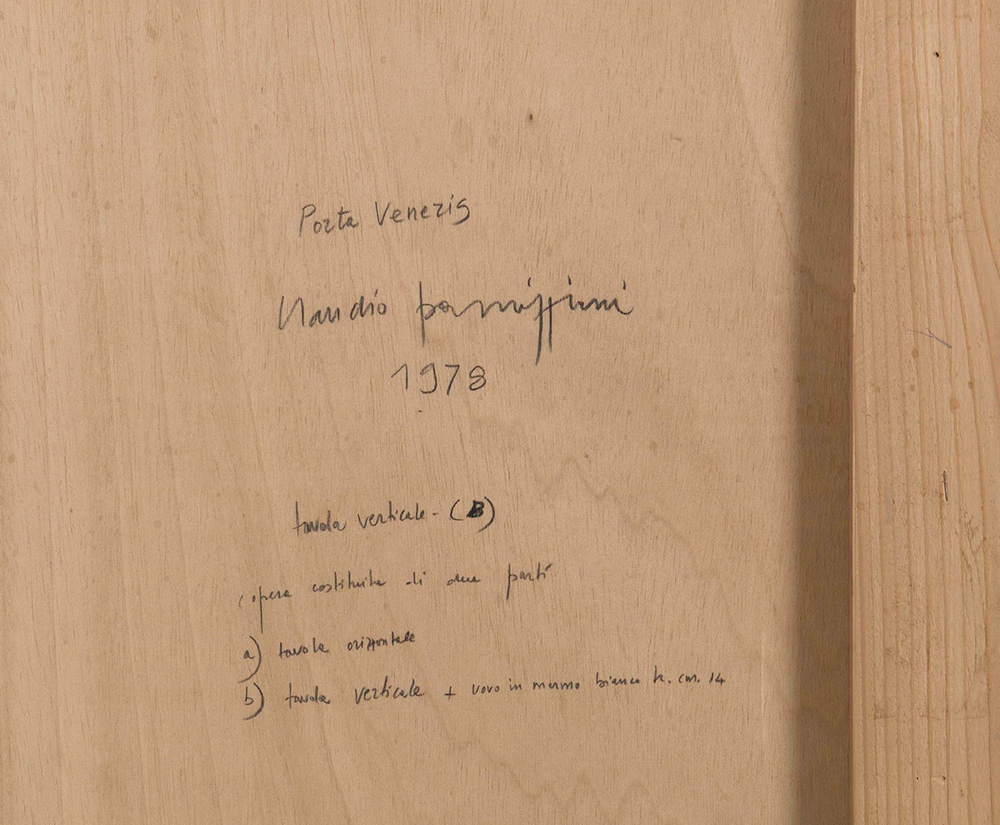 Porta Veneris
Claudio parmiggiani
1978
tavola verticale - (B)
opera costituita di due parti
a) tavola orizzontale
b) tavola verticale + uovo in marmo bianco h. cm. 14